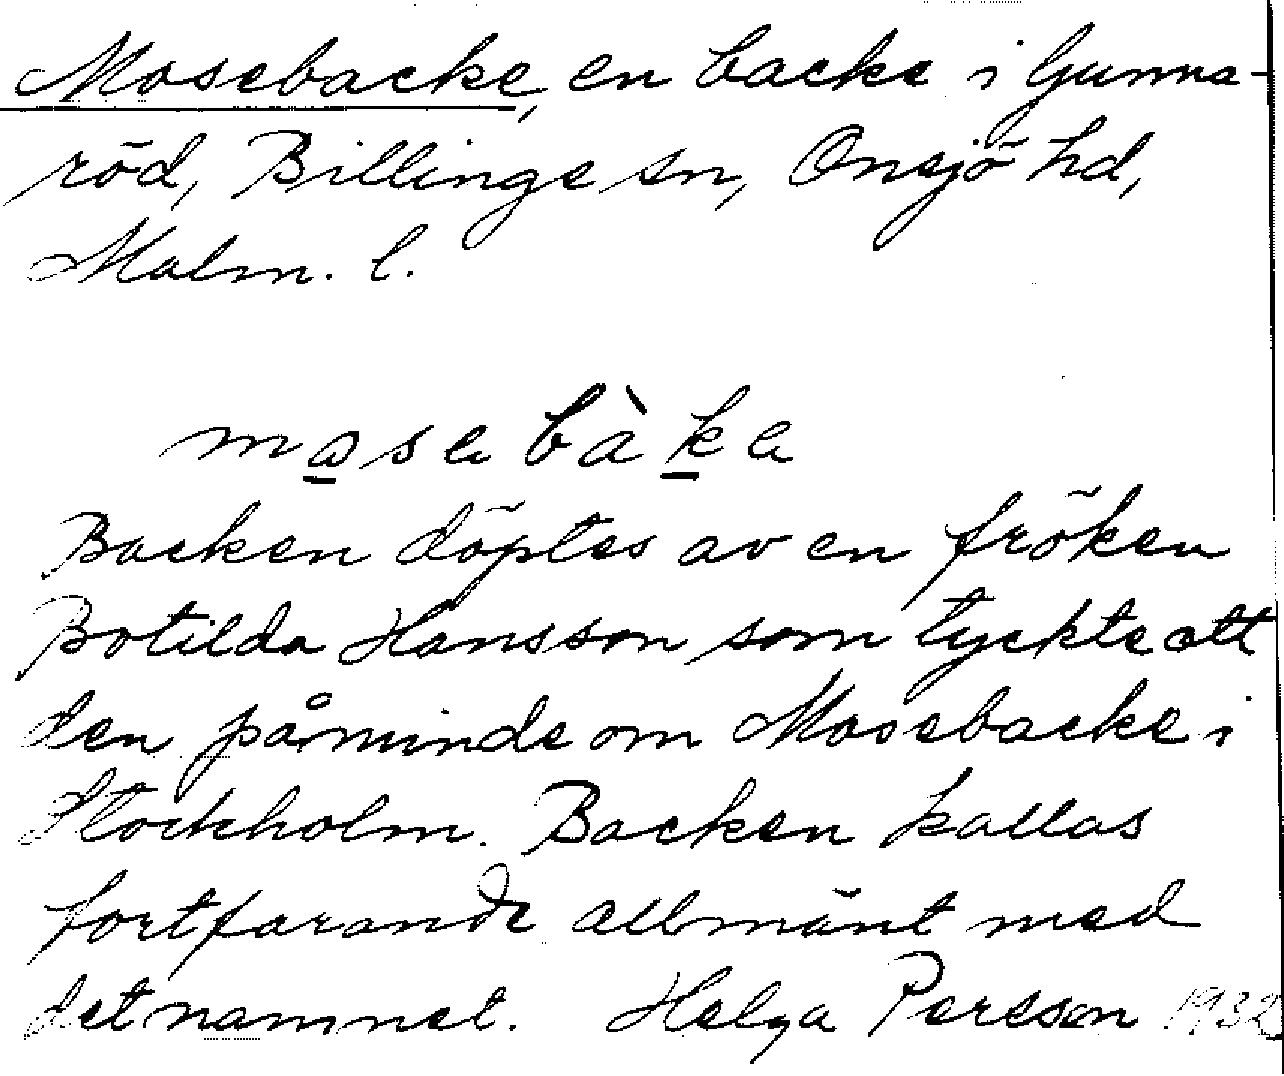 Mosebacke, en backe i Gunna-
röd, Billinge sn, Onsjö hd,
Malm. l.
mosebàke
Backen döptes av en fröken
Botilda Hansson som tyckte att
den påminde om Mosebacke i
Stockholm. Backen kallas
fortfarande allmänt med
det namnet. Helga Persson 1932